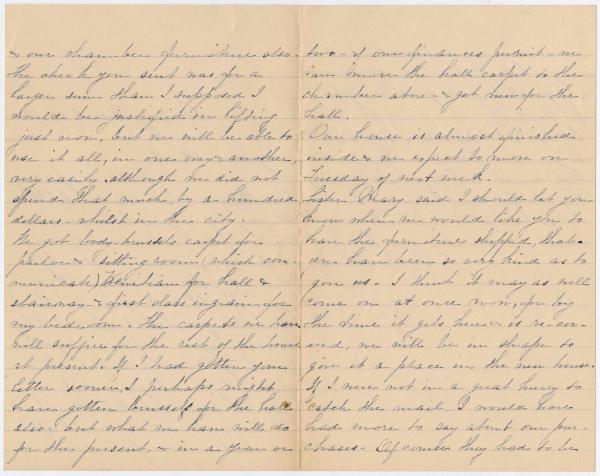 & our chamber furniture also.
The check you sent was for a
larger sum than I supposed I
would be justified in lifting
just now, but we will be able to
use it all, in one way & another,
very easily, although we did not
spend that much by a hundred
dollars - whilst in the city.
We got body brussels carpet for
parlor & sitting room (which com-
municate) Venitian for hall &
stairway - & first class ingrain for
my bed-room. The carpets we have
will suffice for the rest of the house
at present. If I had gotten your
letter sooner, I perhaps might
have gotten brussels for the hall
also - but what we have will do
for the present, & in a year or
two - if our finances permit - we
can move the hall carpet to the
chamber above - & get new for the
hall.
Our house is almost finished
inside & we expect to move on
Tuesday of next week.
Sister Mary said I should let you
know when we would like you to
have the furniture shipped, that
you have been so very kind as to
give us - I think it may as well
come on at once now, for by
the time it gets here & is re-cov-
ered, we will be in shape to
give it a place in the new house.
If I were not in a great hurry to
catch the mail, I would have
had more to say about our pur-
chases - Of course they had to be